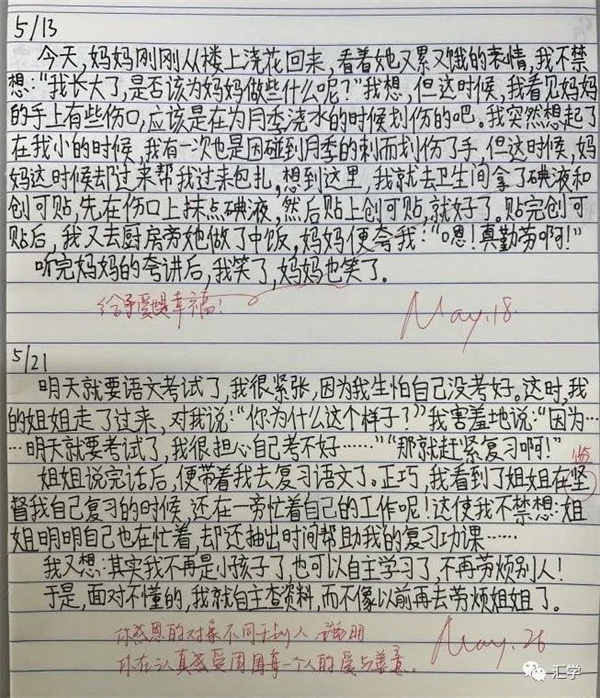 5/13
今天,妈妈刚刚从楼上浇花回来,看着她又累又饿的表情,我不禁
想:“我长大了,是否该为妈妈做些什么呢?”我想,但这时候,我看见妈妈
的手上有些伤口,应该是在为月季浇水的时候划伤的吧。我突然想起了
在我小的时候,我有一次也是因碰到月季的刺而划伤了手,但这时候,妈
妈这时候却过来帮我过来包扎。想到这里,我就去卫生间拿了碘液和
创可贴,先在伤口上抹点碘液,然后贴上创可贴,就好了。贴完创可
贴后,我又去厨房旁她做了中饭,妈妈便夸我:“嗯!真勤劳啊!”
听完妈妈的夸讲后,我笑了,妈妈也笑了。
给予爱是幸福!
May.18.
5/21
明天就要语文考试了,我很紧张,因为我生怕自己没考好。这时,我
的姐姐走了过来,对我说:“你为什么这个样子?”我害羞地说:“因为……
…明天就要考试了,我很担心自己考不好……”“那就赶紧复习啊!”
姐姐说完话后,便带着我去复习语文了。正巧,我看到了姐姐在坚
监
督我自己复习的时候,还在一旁忙着自己的工作呢!这使我不禁想:姐
姐明明自己也在忙着,却还抽出时间帮助我的复习功课……
我又想:其实我不再是小孩子了,也可以自主学习了,不再劳烦别人!
于是,面对不懂的,我就自主查资料,而不像以前再去劳烦姐姐了。
你感恩的对象不同于别人
你在认真感受周围每一个人的爱与善意。
May.26
汇学